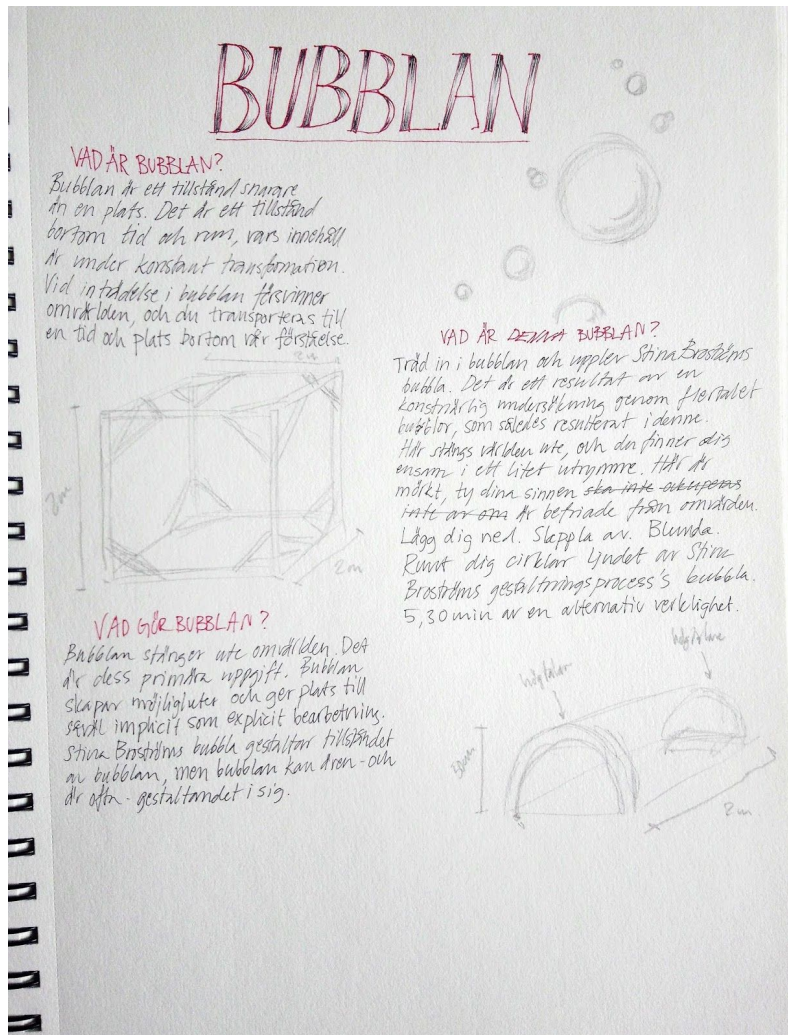 BUBBLAN
VAD ÄR BUBBLAN?
Bubblan är ett tillstånd snarare
än en plats. Det är ett tillstånd
bortom tid och rum, vars innehåll
är under konstant transformation.
Vid inträdelse i bubblan försvinner
omvärlden, och du transporteras till
en tid och plats bortom vår förståelse.
2m
2m
2m
VAD GÖR BUBBLAN?
Bubblan stänger ute omvärlden. Det
är dess primära uppgift. Bubblan
skapar möjligheter och ger plats till
såväl implicit som explicit bearbetning.
Stina Broströms bubbla gestaltar tillståndet
av bubblan, men bubblan kan även - och
är ofta - gestaltandet i sig.
VAD ÄR DENNA BUBBLAN?
Träd in i bubblan och upplev Stina Broströms
bubbla. Det är ett resultat av en
konstnärlig undersökning genom flertalet
bubblor, som således resulterat i denne.
Här stängs världen ute, och du finner dig
ensam i ett litet utrymme. Här är
mörkt, ty dina sinnen ska inte ockuperas
inte av om är befriade från omvärden.
Lägg dig ned. Slappla av. Blunda.
Runt dig cirklar ljudet av Stina
Broströms gestaltningsprocess's bubbla.
5,30 min av en alternativ verklighet.
högtalar
högtalare
2m